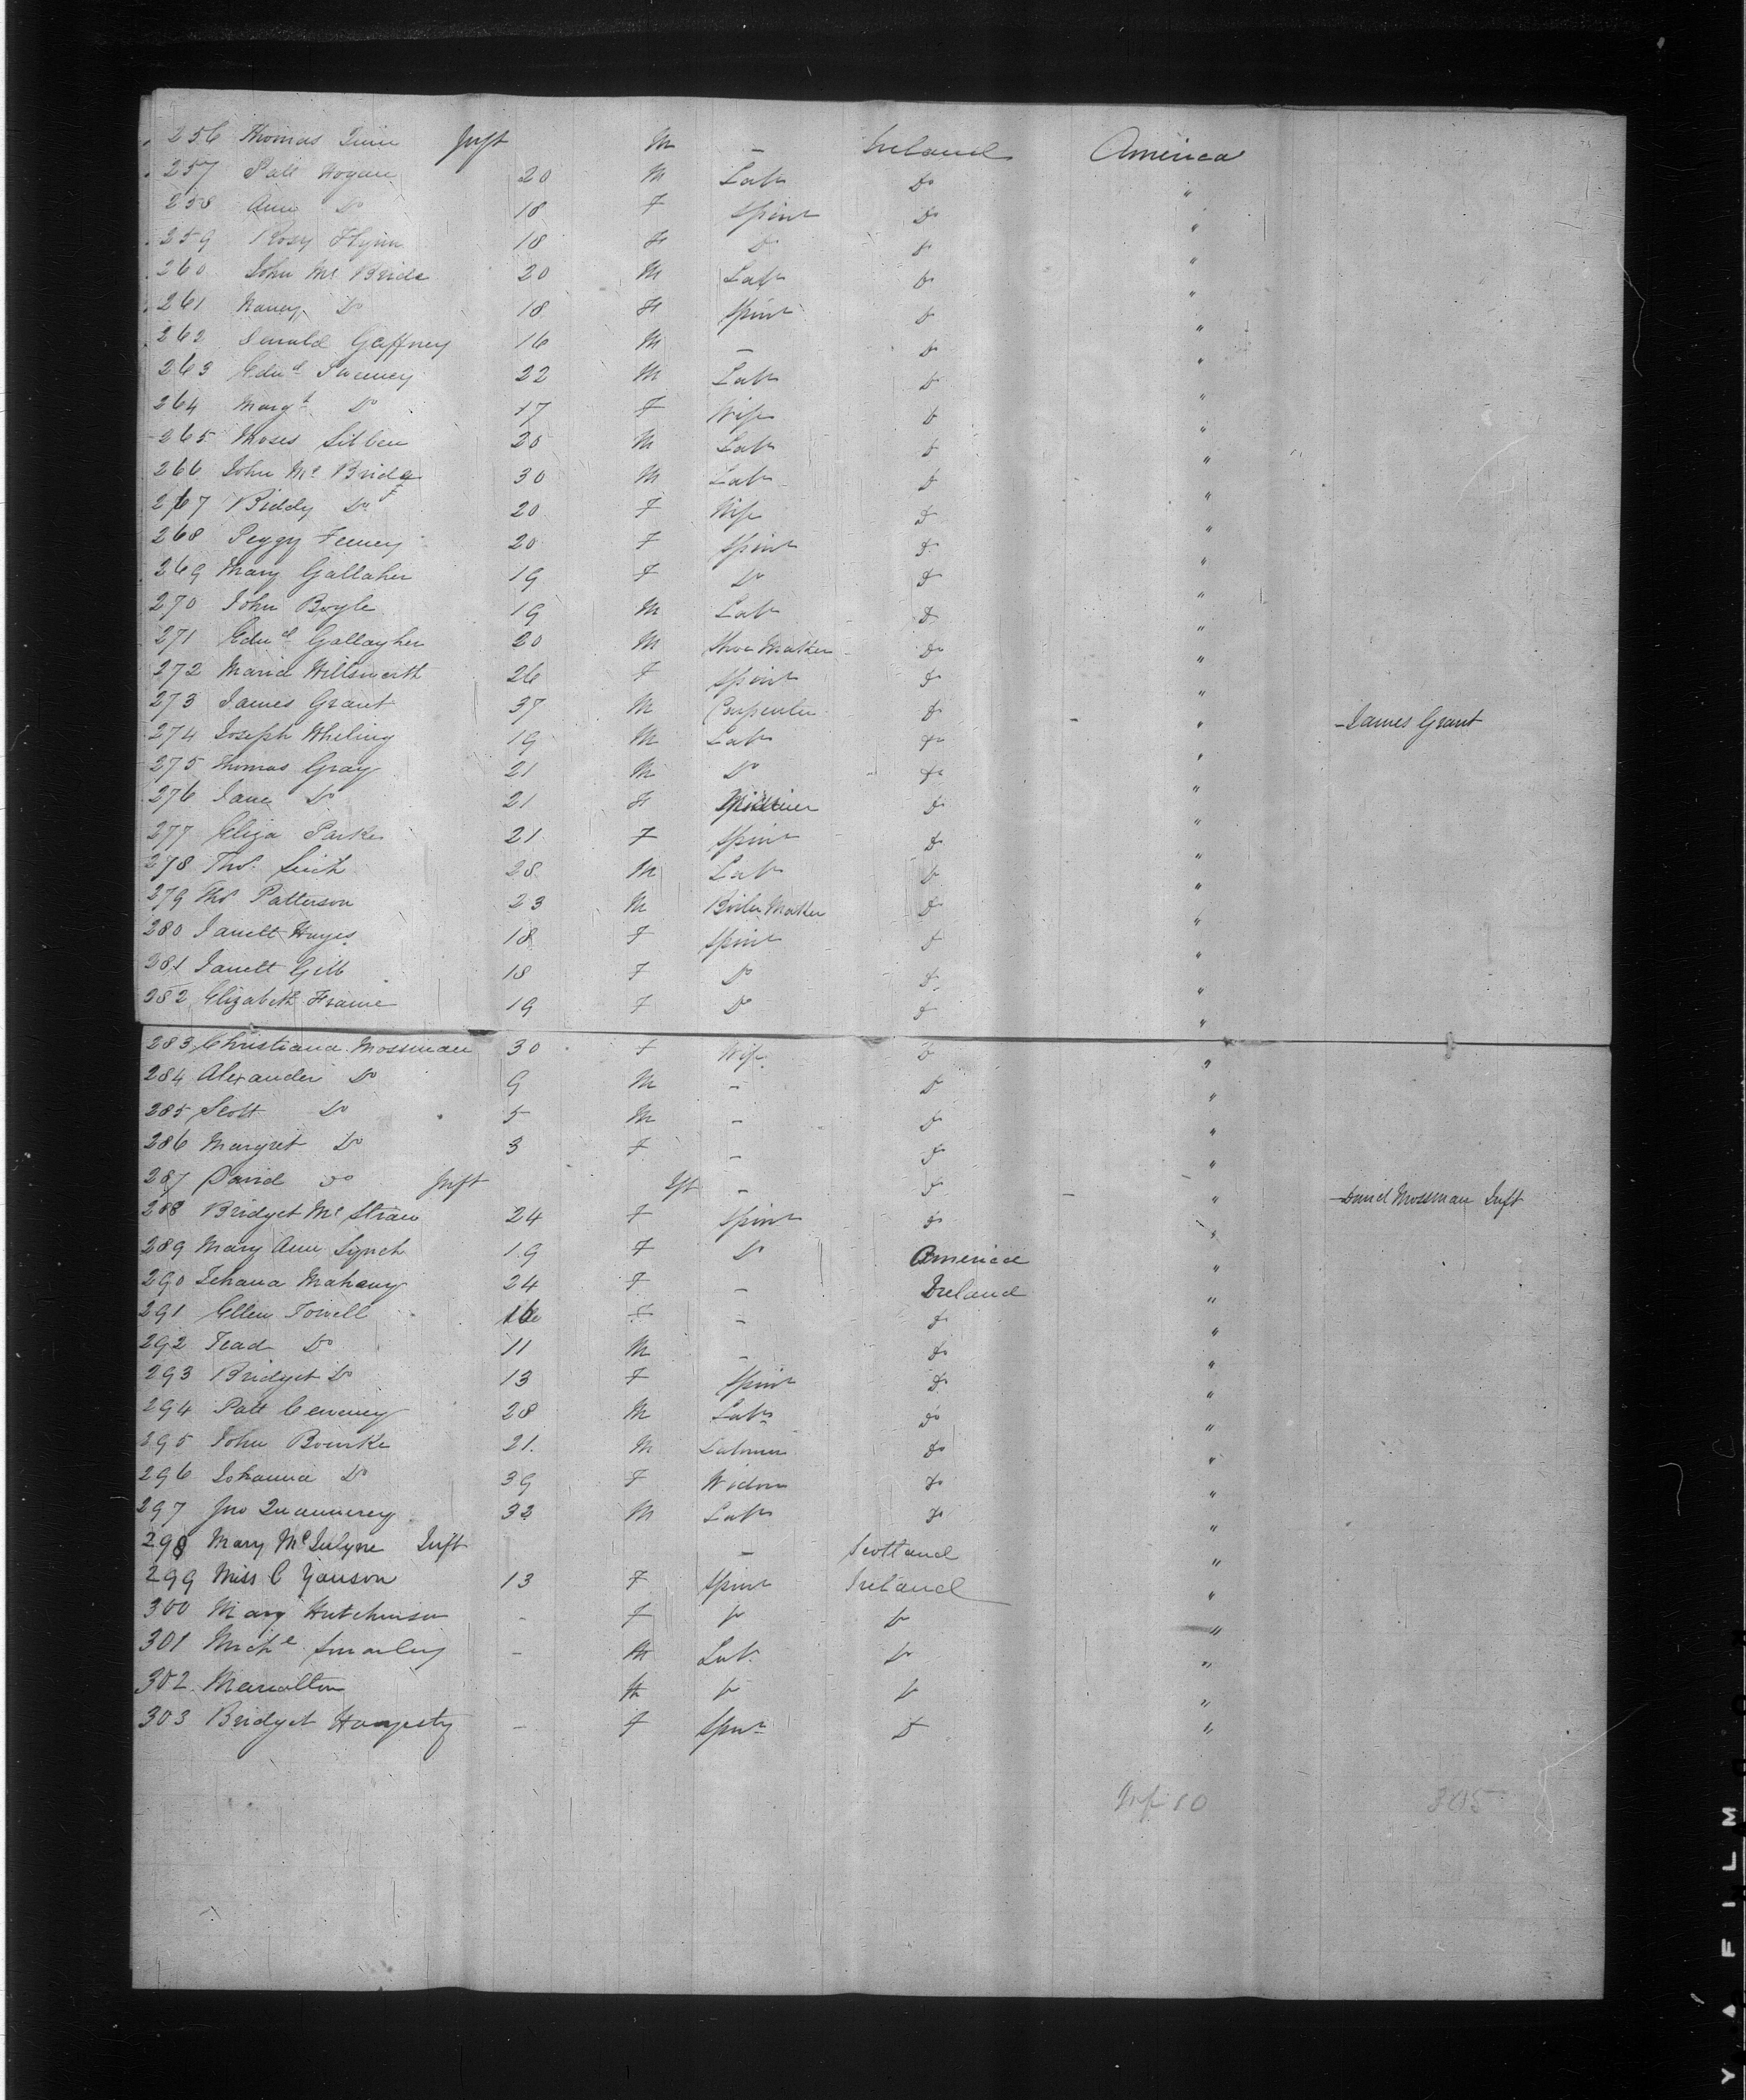 256 Thomas Quin Inft M – Ireland America
257 Patt Hogan 20 M Labr Do "
258 Ann Do 18 F Spinr Do "
259 Rosy Flynn 18 F Do Do "
260 John Mc Bride 20 M Labr Do "
261 Nancy Do 18 F Spinr Do "
262 Gaffney 16 M – Do "
263 Edwd Sweeney 22 M Labr Do "
264 Margt Do 17 F Wife Do "
265 Moses 20 M Labr Do "
266 John Mc Bride 30 M Labr Do "
267 Biddy Do 20 F Wife Do "
268 Peggy Feeney 20 F Spinr Do "
269 Mary Gallaher 19 F Do Do "
270 John Boyle 19 M Labr Do "
271 Edwd Gallagher 20 M Shoe Maker Do "
272 Maria Willsworth 26 F Spinr Do "
273 James Grant 37 M Carpenter Do – " – James Grant
274 Joseph Wheling 19 M Labr Do "
275 Thomas Gray 21 M Do Do "
276 Jane Do 21 F Milliner Do "
277 Eliza Parke 21 F Spinr Do "
278 Thos. 28 M Labr Do "
279 Thos Patterson 23 M Boiler Maker Do "
280 Janett Hayes 18 F Spinr Do "
281 Janett Gibb 18 F Do Do "
282 Elizabeth Frame 19 F Do Do "
283 Christiana Mossman 30 F Wife Do "
284 Alexander Do 9 M – Do "
285 Scott Do 5 M – Do "
286 Margret Do 3 F – Do "
287 David Do Inft – Do – " – David Mossman Inft
288 Bridget Mc Straw 24 F Spinr Do "
289 Mary Ann Lynch 19 F Do America "
290 Mahany 24 F – Ireland "
291 Ellen Towell 16 F – Do "
292 Tead Do 11 M – Do "
293 Bridget Do 13 F Spinr Do "
294 Patt 28 M Labr Do "
295 John Bourke 21 M Labourer Do "
296 Johanna Do 39 F Widow Do "
297 Jno 32 M Labr Do "
298 Mary Inft – Scotland "
299 Miss C Yanson 13 F Spinr Ireland "
300 Mary Hutchinson – F Do Do "
301 Michl – M Labr Do "
302 M Do Do "
303 Bridget – F Spinr Do "
Inf 10 305